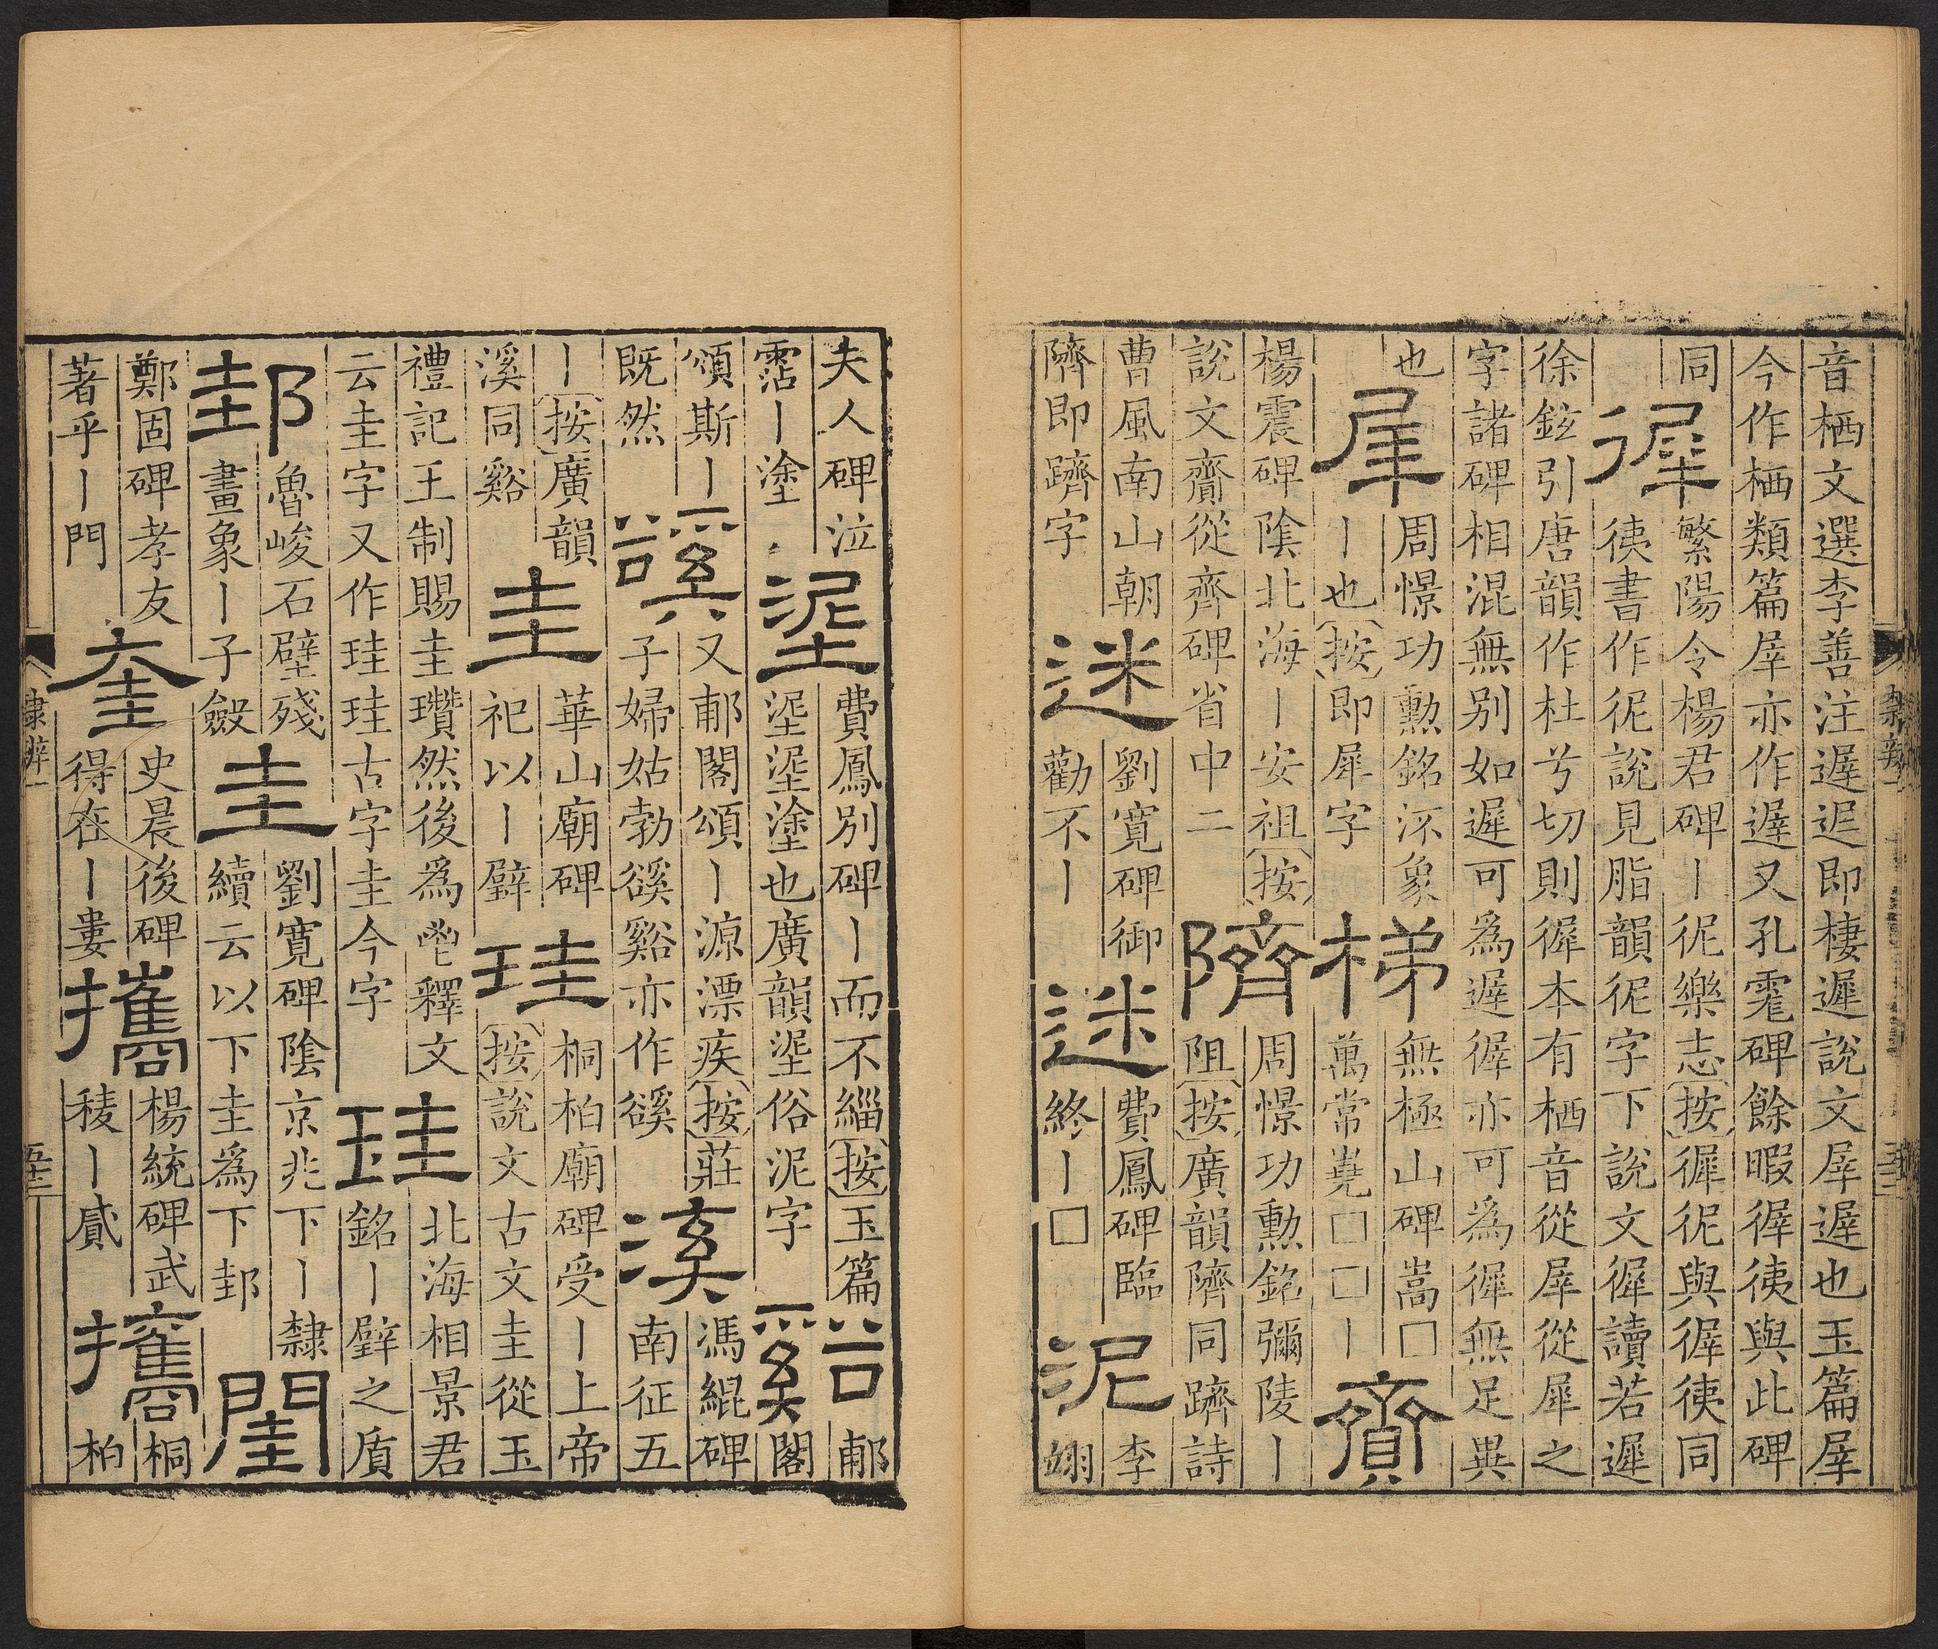 音栖文選李善注遲迟即棲遲說文犀遲也玉篇犀
今作栖類篇犀亦作遟又孔霍碑餘暇徲徚與此碑
同
徲
繁陽令楊君碑〡彽樂志按徲彽與徲徚同
徚書作彽說見脂韻彽字下說文徲讀若遲
徐鉉引唐韻作杜兮切則徲本有栖音從犀從犀之
字諸碑相混無別如遲可為遟徲亦可為徲無足異
也
犀
周憬功勲銘泝象
〡也按即犀字
梯
無極山碑嵩□
萬常嶤□□〡
齎
楊震碑陰北海〡安祖按
說文齎從齊碑省中二
隮
周憬功勲銘彌陵〡
阻按廣韻隮同躋詩
曹風南山朝
隮即躋字
迷
劉寬碑御
勸不〡
迷
費鳳碑臨
終〡□
泥
李
翊
夫人碑泣
霑〡塗
埿
費鳳別碑〡而不緇按玉篇
埿埿塗也廣韻埿俗泥字
谿
郙
閣
頌斯〡
既然
谿
又郙閣頌〡源漂疾按莊
子婦姑勃豀谿亦作豀
溪
馮緄碑
南征五
〡按廣韻
溪同谿
圭
華山廟碑
祀以〡璧
珪
桐柏廟碑受〡上帝
按說文古文圭從玉
禮記王制賜圭瓚然後為鬯釋文
云圭字又作珪珪古字圭今字
珪
北海相景君
銘〡璧之質
邽
魯峻石壁殘
畫象〡子斂
圭
劉寬碑陰京兆下〡隸
續云以下圭為下邽
閨
鄭固碑孝友
著乎〡門
奎
史晨後碑
得在〡婁
攜
楊統碑武
稜〡貳
攜
桐
柏